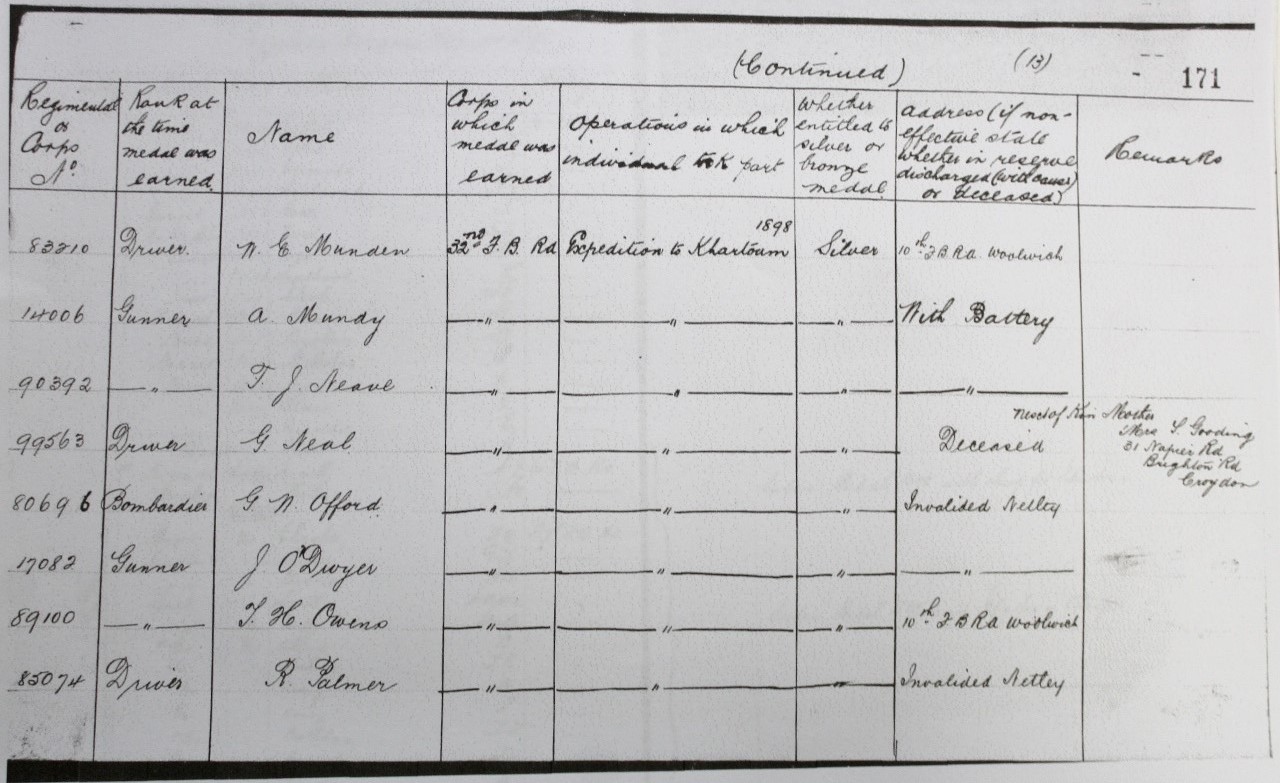 (Continued) (13) 171
Regimental or Corps No. | Rank at the time medal was earned. | Name | Corps in which medal was earned | Operations in which individual took part | Whether entitled to silver or bronze medal. | Address (if non-effective state whether in reserve discharged (with cause) or deceased) | Remarks
83210 Driver. W. E. Munden 32nd F. B. RA Expedition to Khartoum 1898 Silver 10th F B RA Woolwich
14006 Gunner A. Mundy —"— —"— —"— With Battery
90392 —"— T. J. Neave —"— —"— —"— —"—
99563 Driver G. Neal —"— —"— —"— Deceased Next of Kin Mother
Mrs S. Gooding
31 Napier Rd
Brighton Rd
Croydon
80696 Bombardier G. W. Offord —"— —"— —"— Invalided Netley
17082 Gunner J. O'Dwyer —"— —"— —"— —"—
89100 —"— T. H. Owens —"— —"— —"— 10th F B RA Woolwich
85074 Driver R. Palmer —"— —"— —"— Invalided Netley